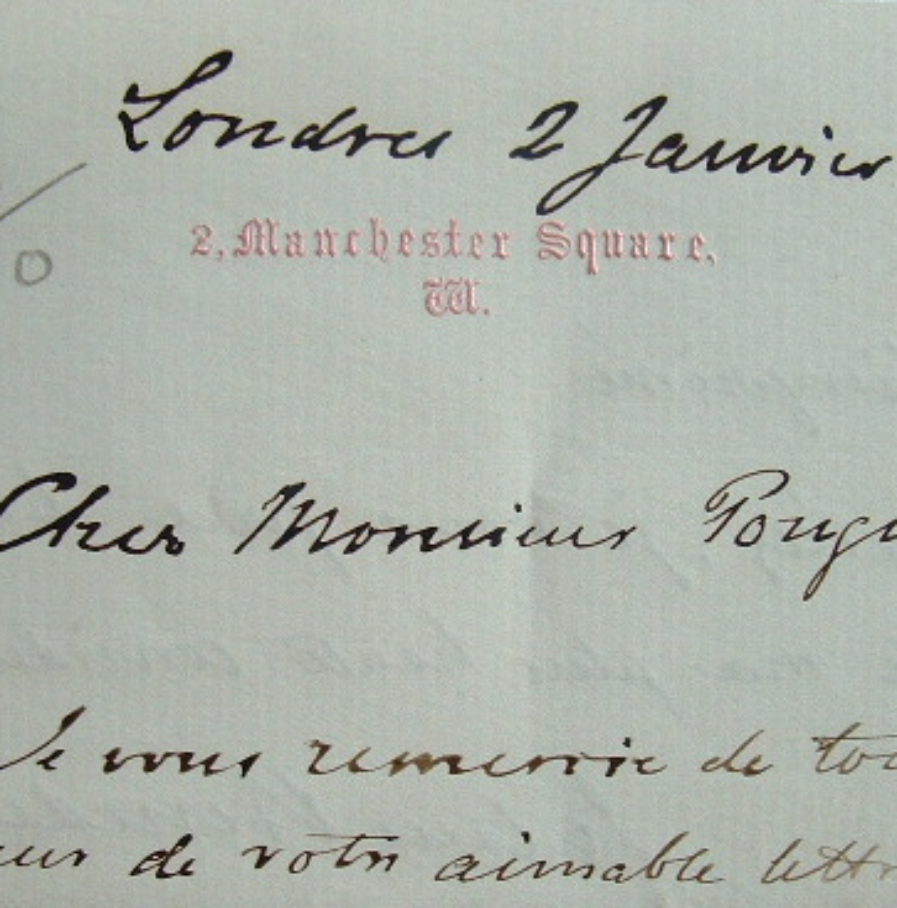 Londres 2 Janvier
2, Manchester Square,
W.
Cher Monsieur Poug
Je vous remercie de tou
eur de votre aimable lettr